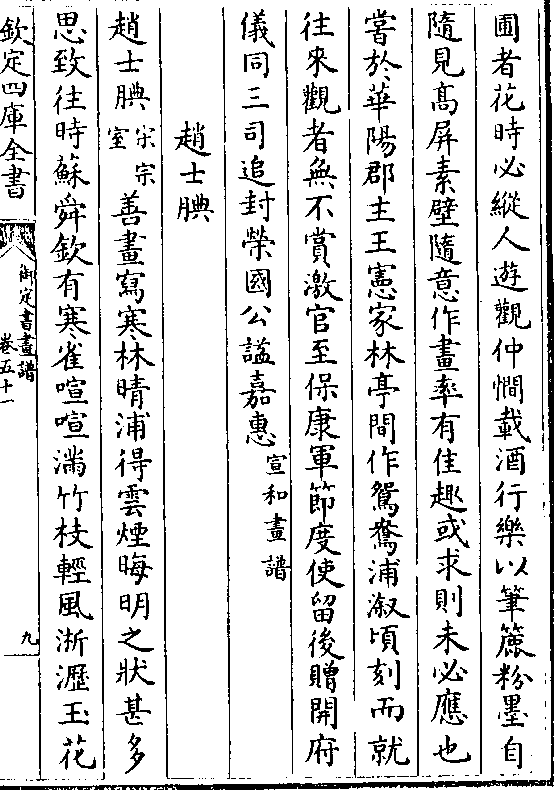 圃者花時必縱人遊觀仲僩載酒行樂以筆簏粉墨自
隨見高屏素壁隨意作畫率有佳趣或求則未必應也
嘗於華陽郡主王憲家林亭間作鴛鴦浦漵頃刻而就
往來觀者無不賞激官至保康軍節度使留後贈開府
儀同三司追封榮國公諡嘉惠宣和畫譜
趙士腆
趙士腆宋宗室善畫寫寒林晴浦得雲煙晦明之狀甚多
思致往時蘇舜欽有寒雀喧喧滿竹枝輕風淅瀝玉花
欽定四庫全書
御定書畫譜
卷五十一
九